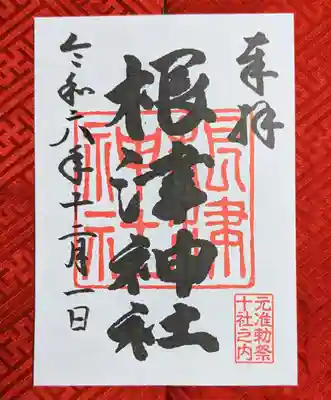 奉拝
根津神社
根津神社
令和六年十二月一日
元准勅祭
十社之内